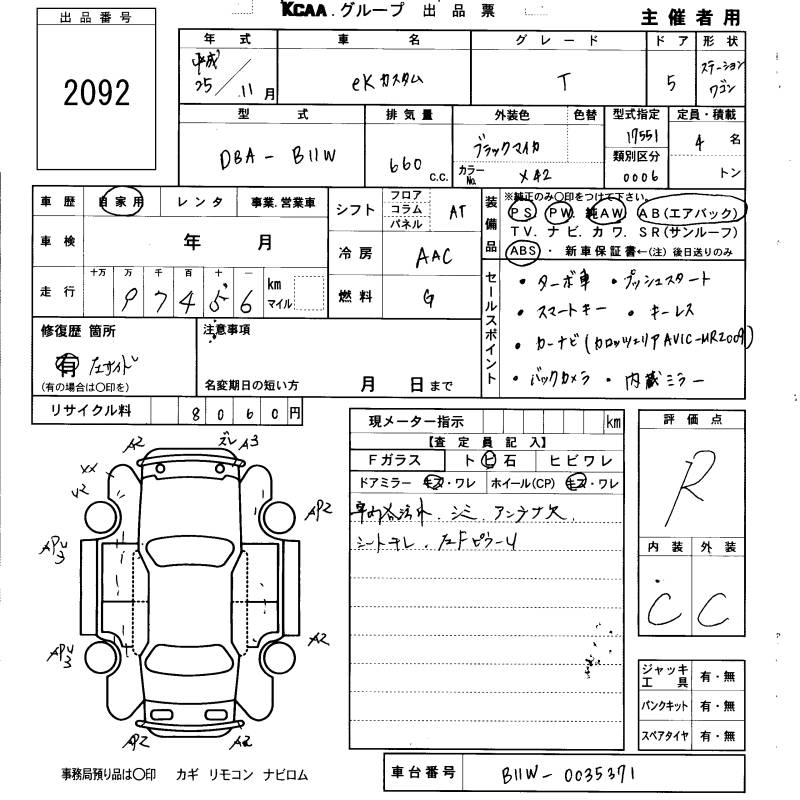 KCAA.グループ 出品票
主催者用
出品番号
2092
年式 車名 グレード ドア 形状
平成25/11月 eKカスタム T 5 ステーションワゴン
型式 排気量 外装色 色替 型式指定 定員・積載
DBA-B11W 660 c.c. ブラックマイカ 17551 4 名
カラーNo. X42 類別区分 0006 トン
車歴 自家用 レンタ 事業.営業車
車検 年 月
走行 十万 万 千 百 十 一 km マイル
97456
シフト フロア コラム パネル AT
冷房 AAC
燃料 G
装備品 ※純正のみ〇印をつけて下さい。
PS PW. 純AW. AB(エアバック)
TV. ナビ. カワ. SR(サンルーフ)
ABS ・ 新車保証書←(注)後日送りのみ
セールスポイント
・ターボ車 ・プッシュスタート
・スマートキー ・キーレス
・カーナビ(カロッツェリアAVIC-MR2009)
・バックカメラ ・内蔵ミラー
修復歴 箇所
有 左サイド
(有の場合は〇印を)
注意事項
名変期日の短い方 月 日まで
リサイクル料 8060円
現メーター指示 km
【査定員記入】
Fガラス ト ビ 石 ヒビワレ
ドアミラー キズ・ワレ ホイール(CP) キズ・ワレ
シミ. アンテナ欠
シートテレ. 左FピラーU
評価点
R
内装 外装
C C
ジャッキ工具 有・無
パンクキット 有・無
スペアタイヤ 有・無
A2 ズレ A3
XX
AP2
A2
AP2 A2
事務局預り品は〇印 カギ リモコン ナビロム
車台番号 B11W-0035371